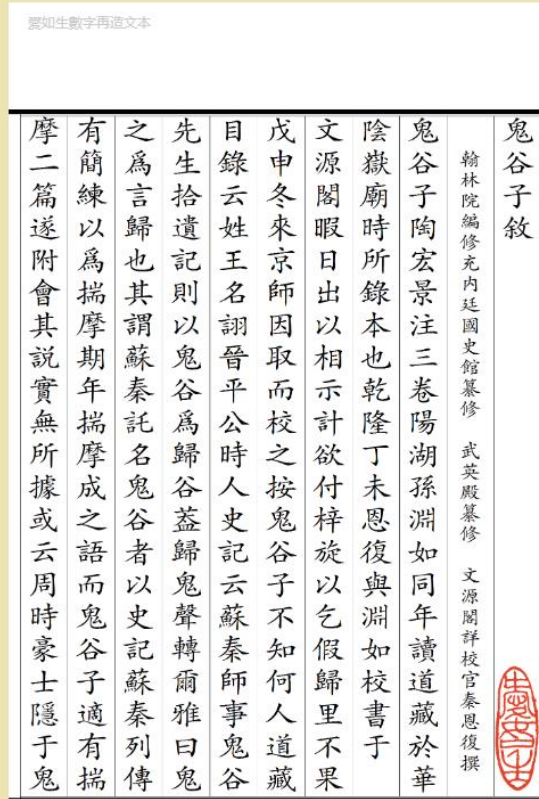 愛如生數字再造文本
鬼谷子敘
翰林院編修充内廷國史館纂修　武英殿纂修　文源閣詳校官秦恩復撰
鬼谷子陶宏景注三卷陽湖孫淵如同年讀道藏於華
陰嶽廟時所錄本也乾隆丁未恩復與淵如校書于
文源閣暇日出以相示計欲付梓旋以乞假歸里不果
戊申冬來京師因取而校之按鬼谷子不知何人道藏
目錄云姓王名詡晉平公時人史記云蘇秦師事鬼谷
先生拾遺記則以鬼谷爲歸谷葢歸鬼聲轉爾雅曰鬼
之爲言歸也其謂蘇秦託名鬼谷者以史記蘇秦列傳
有簡練以爲揣摩期年揣摩成之語而鬼谷子適有揣
摩二篇遂附會其説實無所據或云周時豪士隱于鬼